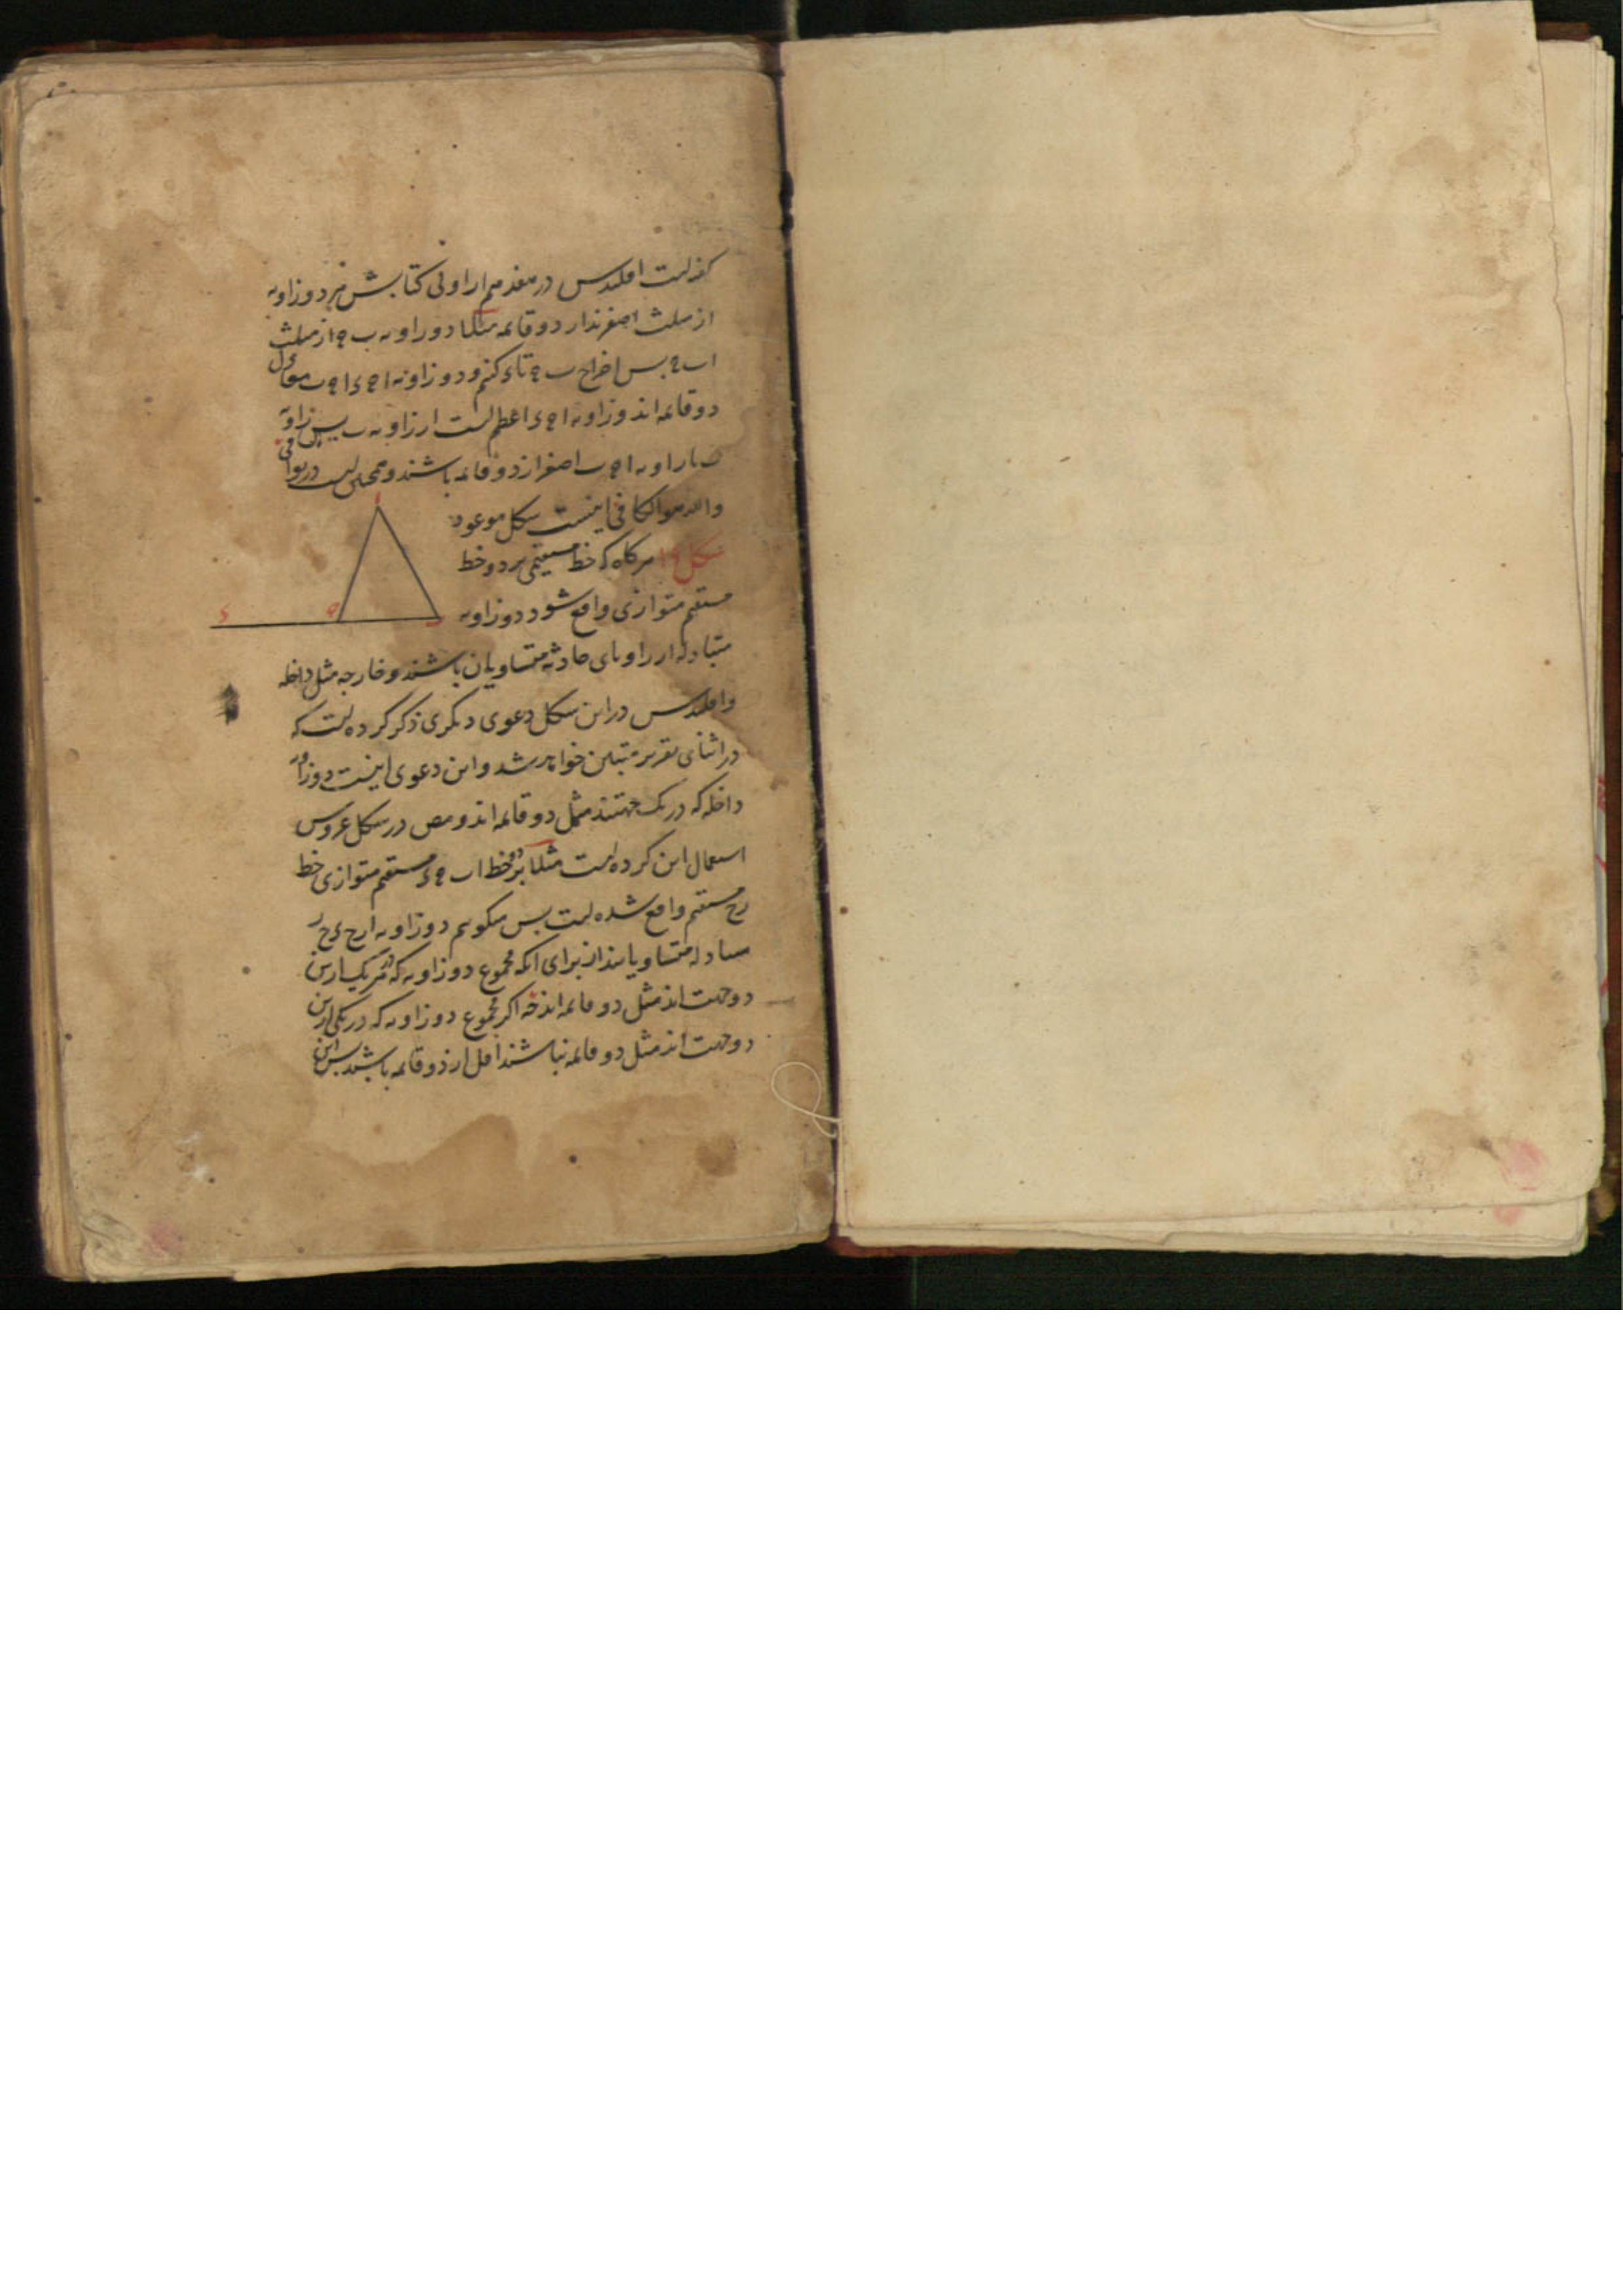 گفته است اقلیدس در هفدهم از اولی کتابش هر دو زاویه
از مثلث اصغرند از دو قائمه مثلا دو زاویه ب ج از مثلث
اب ج پس اخراج ب ج تا د کنیم و دو زاویه ا ج د ا ج ب معادل
دو قائمه اند و زاویه ا ج د اعظم است از زاویه ب پس زاویه
ب با زاویه ا ج ب اصغر از دو قائمه باشند و
والله هو الکافی اینست شکل موعود
شکل هرگاه که خط مستقیمی بر دو خط
مستقیم متوازی واقع شود دو زاویه
متبادله از زوایای حادثه متساویان باشند و خارجه مثل داخله
و اقلیدس در این شکل دعوی دیگری ذکر کرده است که
در اثنای تقریر متبین خواهد شد و این دعوی اینست دو زاویه
داخله که در یک جهتند مثل دو قائمه اند و مص در شکل عروس
استعمال این کرده است مثلا بر دو خط اب ج د مستقیم متوازی خط
ر ح مستقیم واقع شده است پس میگویم دو زاویه ا ر ح د ح ر
متبادله متساویانند از برای آنکه مجموع دو زاویه که در هر یک از این
دو جهت اند مثل دو قائمه اند چه اگر مجموع دو زاویه که در یکی از این
دو جهت اند مثل دو قائمه نباشند اقل از دو قائمه باشند پس این
ا
د ج ب